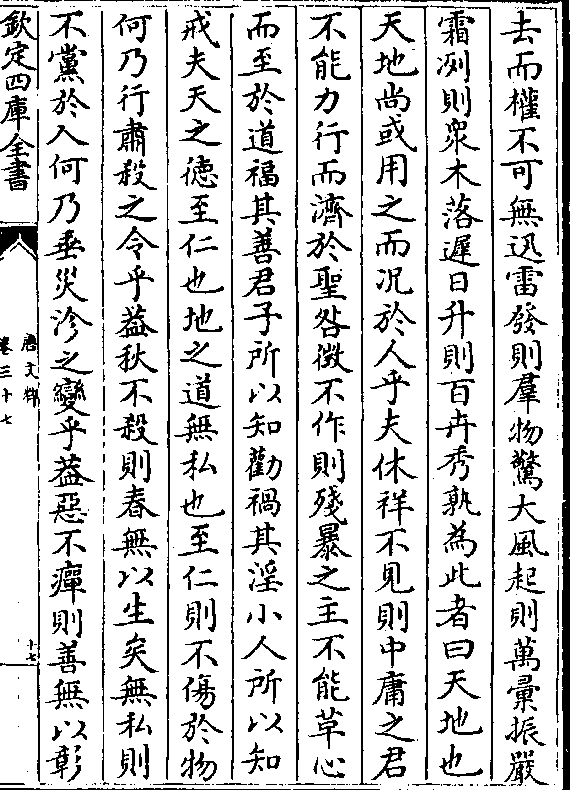 去而權不可無迅雷發則羣物驚大風起則萬彚振嚴
霜冽則衆木落遲日升則百卉秀孰為此者曰天地也
天地尚或用之而况於人乎夫休祥不見則中庸之君
不能力行而濟於聖咎徴不作則殘暴之主不能草心
而至於道福其善君子所以知勸禍其淫小人所以知
戒夫天之徳至仁也地之道無私也至仁則不傷於物
何乃行肅殺之令乎葢秋不殺則春無以生矣無私則
不黨於人何乃垂災沴之變乎葢惡不癉則善無以彰
欽定四庫全書
唐文粹
卷三十七
十七